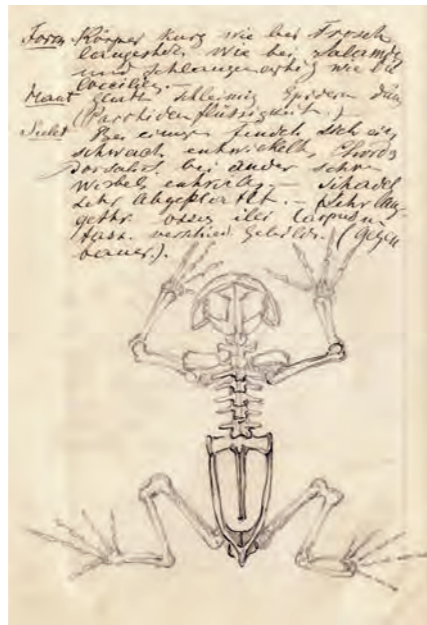 Form Körper kurz wie bei Frosch
langestreckt wie bei Salamdr
und Schlangenartig wie bei
Coecilien.
Haut glatt schleimig Epidermis dünn
(Parotidenflüssigkeit.)
Sclet Bei einigen findet sich ein
schwach entwickelte Chorda
dorsalis bei ander schon
Wirbel entwickl. — Schädel
sehr abgeplattet. — Sehr lang
ossa ilei Carpus u.
tars. verschied. gebildet. (Gegen
bauer.).